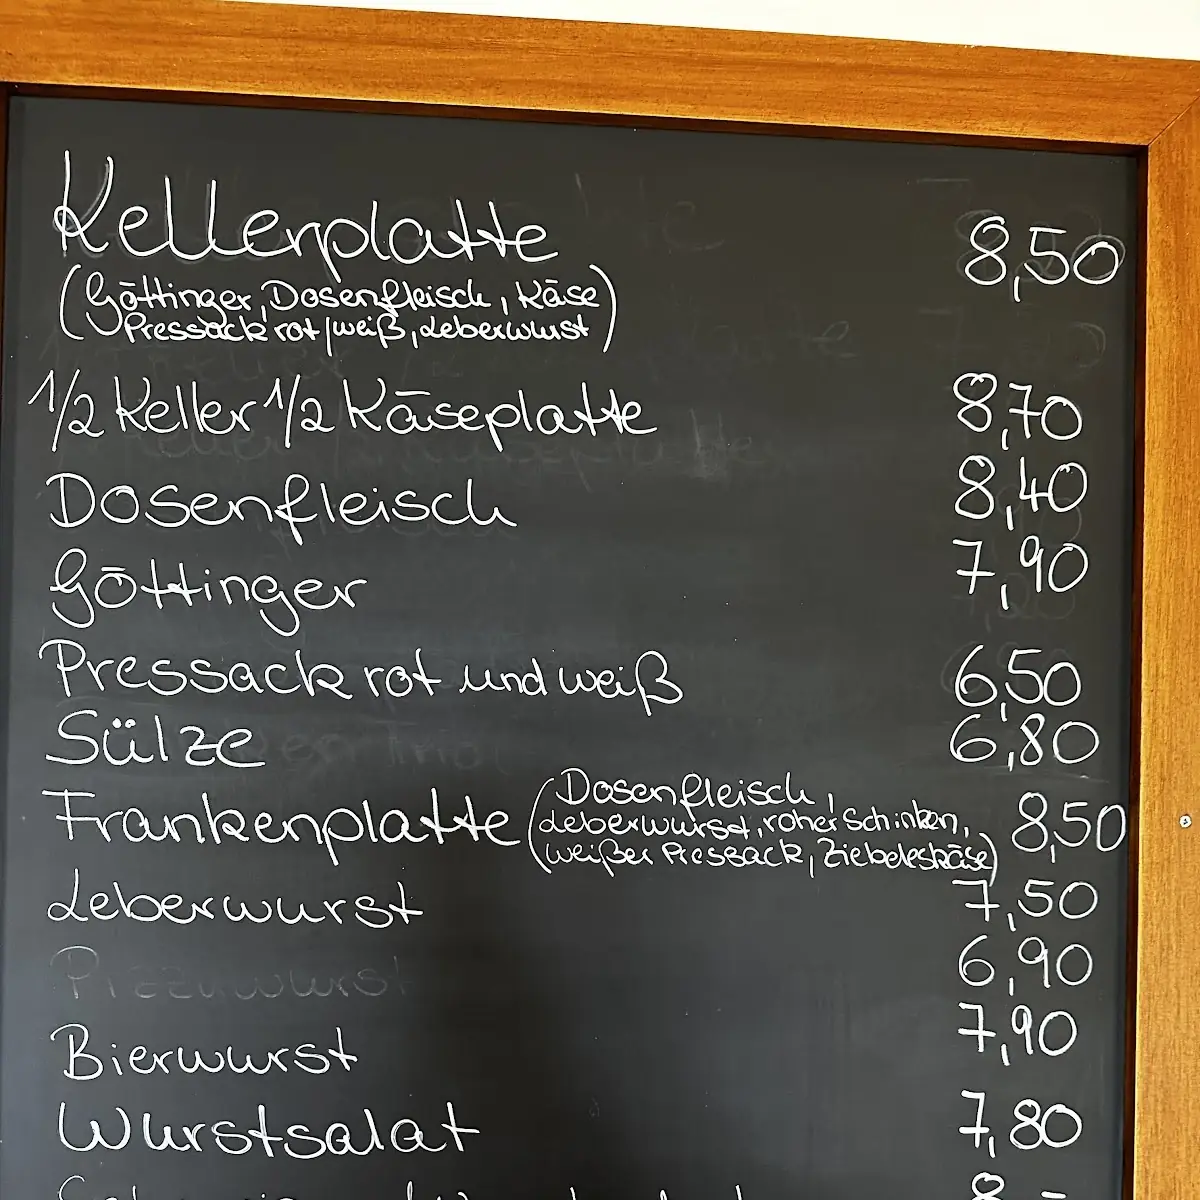 Kellerplatte 8,50
(Göttinger, Dosenfleisch, Käse
Pressack rot/weiß, Leberwurst)
1/2 Keller 1/2 Käseplatte 8,70
Dosenfleisch 8,40
Göttinger 7,90
Pressack rot und weiß 6,50
Sülze 6,80
Frankenplatte (Dosenfleisch, 8,50
Leberwurst, roher Schinken,
weißer Pressack, Ziebeleskäse)
Leberwurst 7,50
6,90
Bierwurst 7,90
Wurstsalat 7,80